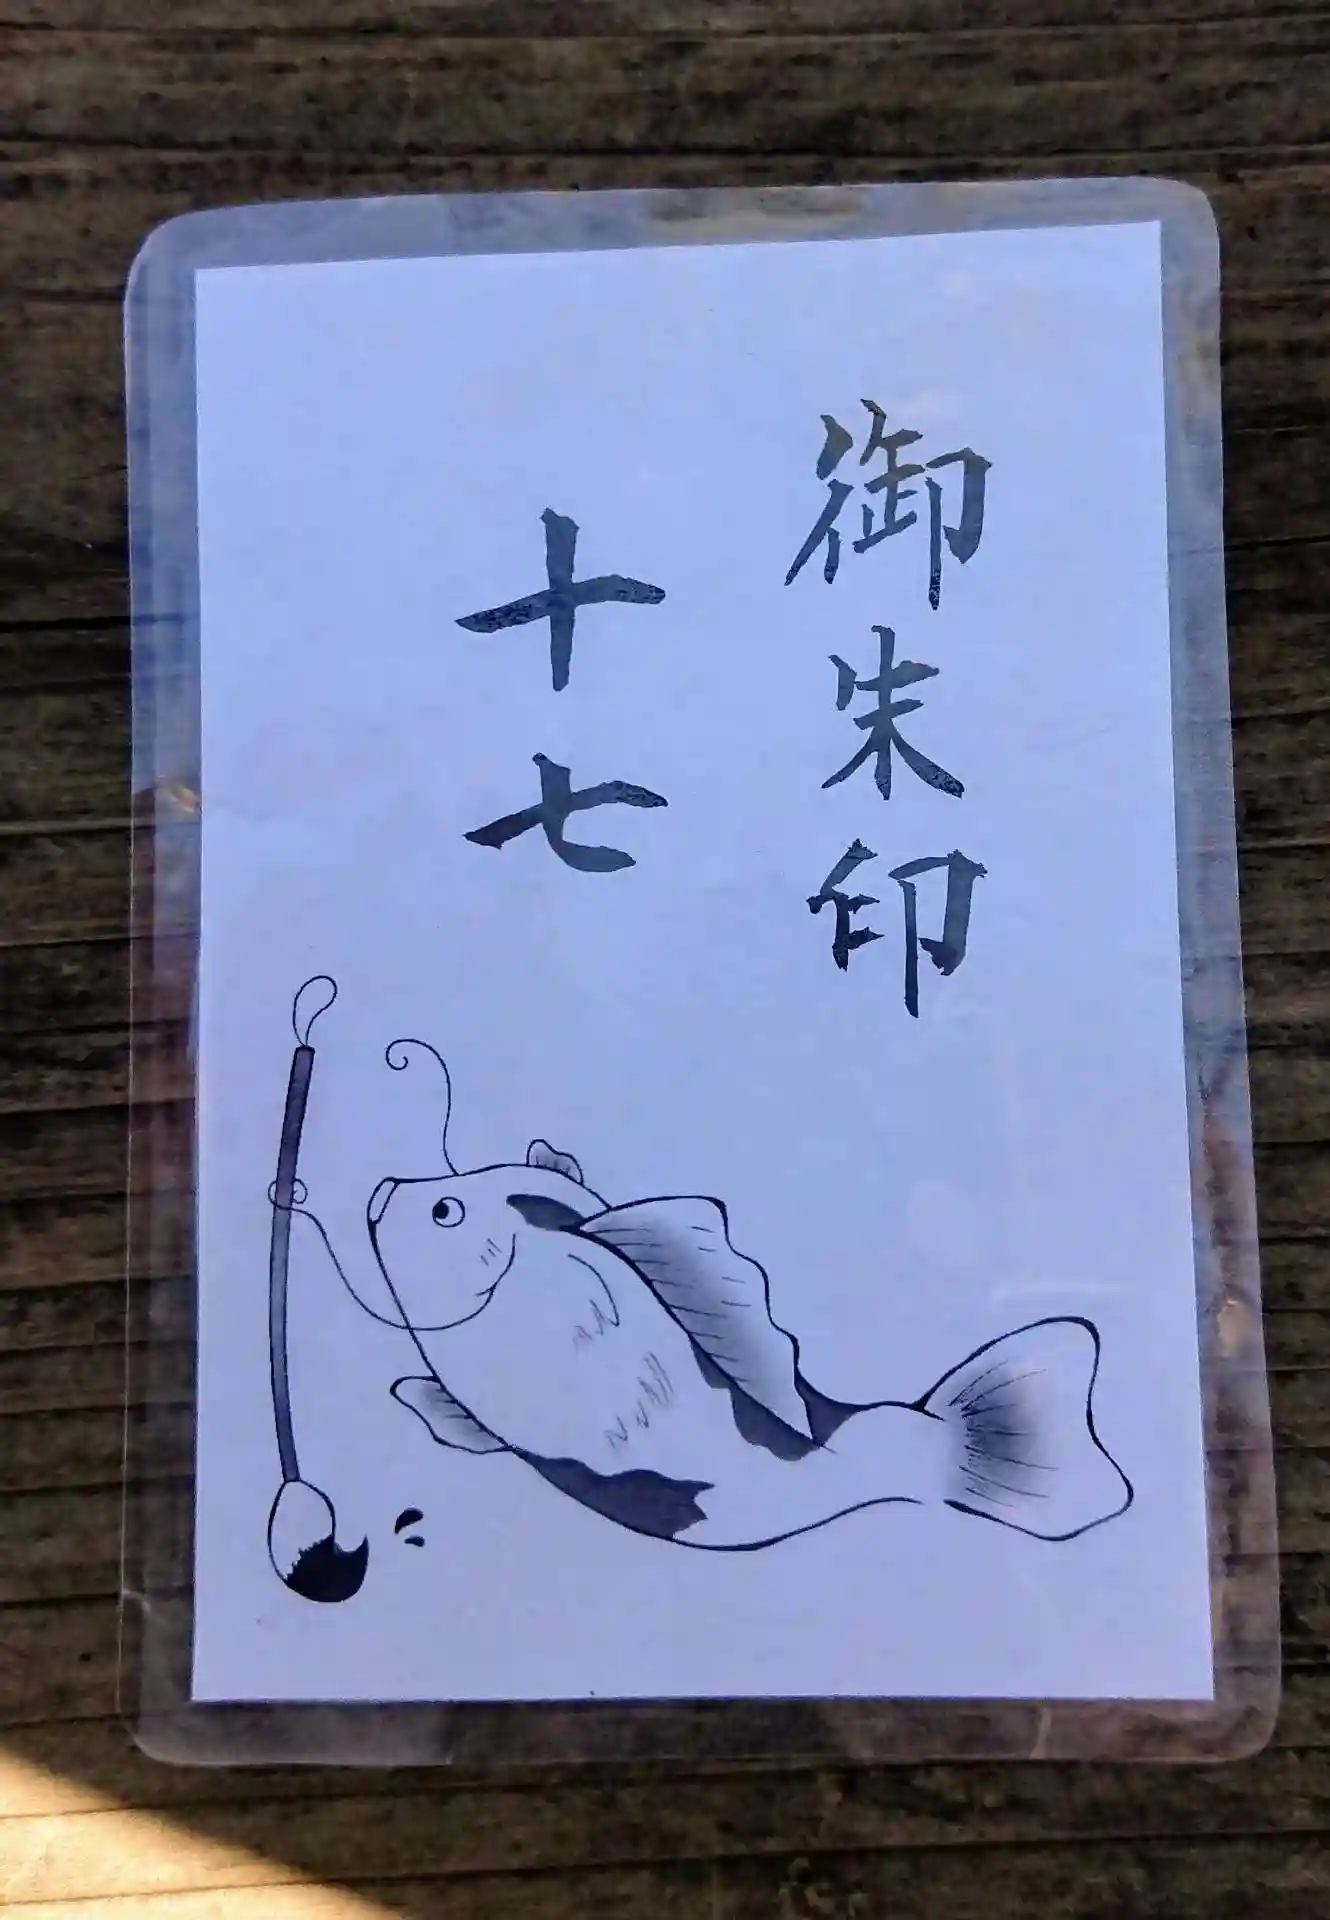 御朱印
十七